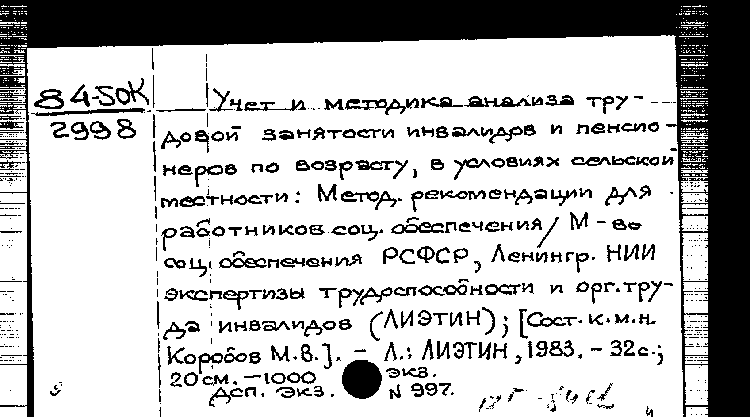 84-50К
2998
Учет и методика анализа тру-
довой занятости инвалидов и пенсио-
неров по возрасту, в условиях сельской
местности: Метод. рекомендации для
работников соц. обеспечения / М-во
соц. обеспечения РСФСР, Ленингр. НИИ
экспертизы трудоспособности и орг. тру-
да инвалидов (ЛИЭТИН); [Сост. к.м.н.
Коробов М.В.]. – Л.: ЛИЭТИН, 1983. – 32с.;
20 см. – 1000 экз.
Дсп. экз. N 997.